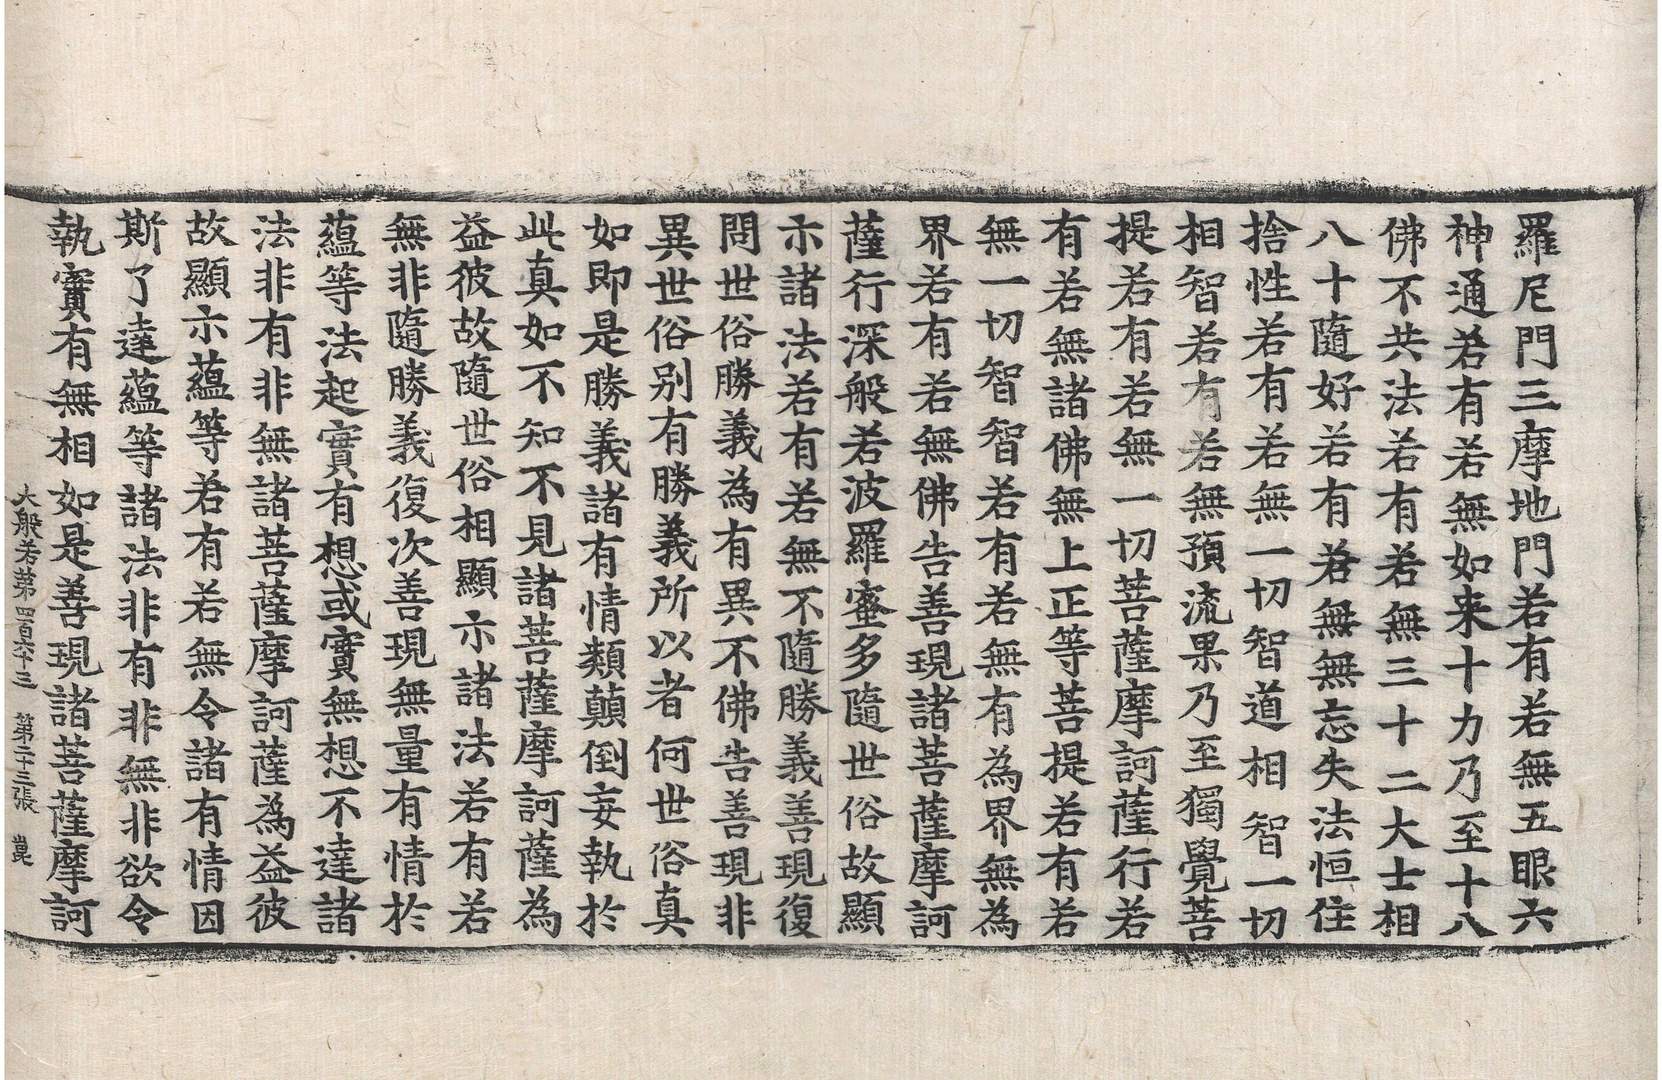 羅尼門三摩地門若有若無五眼六
神通若有若無如来十力乃至十八
佛不共法若有若無三十二大士相
八十隨好若有若無無忘失法恒住
捨性若有若無一切智道相智一切
相智若有若無預流果乃至獨覺菩
提若有若無一切菩薩摩訶薩行若
有若無諸佛無上正等菩提若有若
無一切智智若有若無有為界無為
界若有若無佛告善現諸菩薩摩訶
薩行深般若波羅蜜多隨世俗故顯
示諸法若有若無不隨勝義善現復
問世俗勝義為有異不佛告善現非
異世俗别有勝義所以者何世俗真
如即是勝義諸有情類顛倒妄執於
此真如不知不見諸菩薩摩訶薩為
益彼故隨世俗相顯示諸法若有若
無非隨勝義復次善現無量有情於
蘊等法起實有想或實無想不達諸
法非有非無諸菩薩摩訶薩為益彼
故顯示蘊等若有若無令諸有情因
斯了達蘊等諸法非有非無非欲令
執實有無相如是善現諸菩薩摩訶
大般若第四百六十三 第二十三張 崑